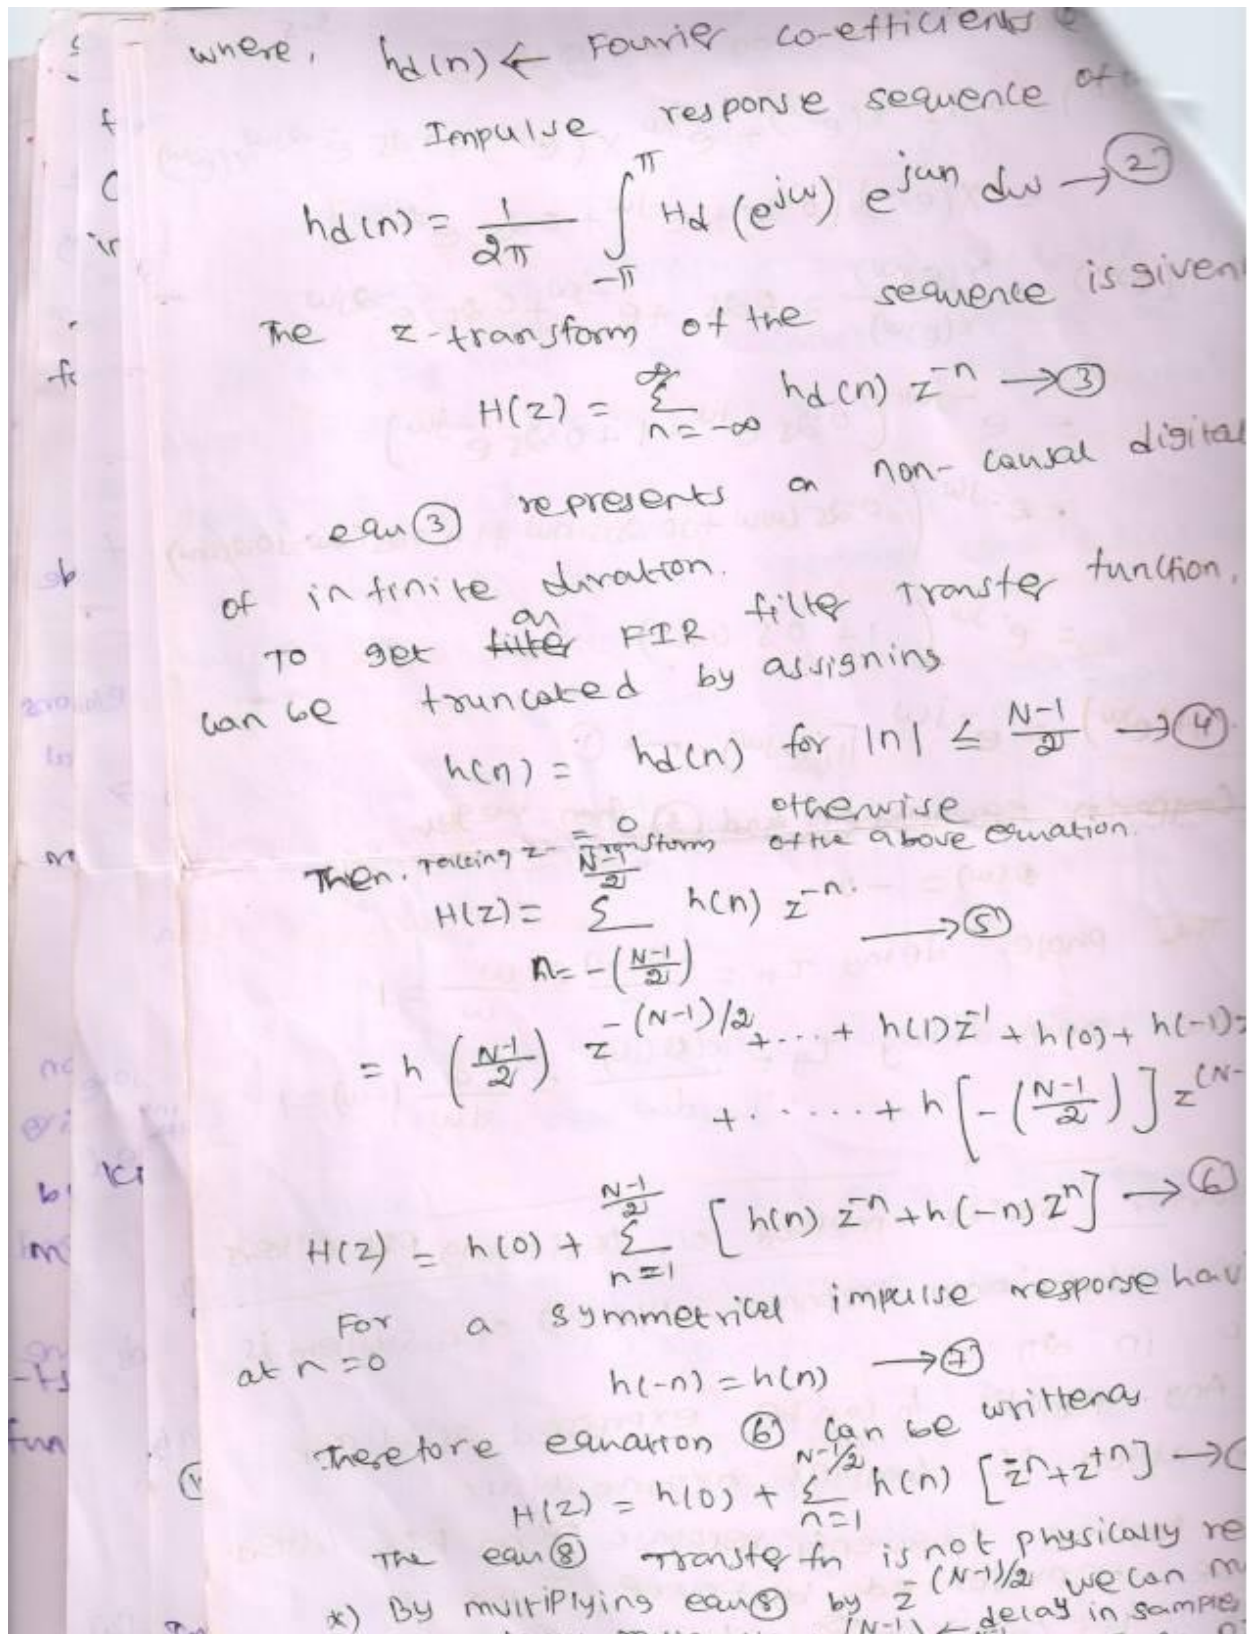 where, hd(n) ← Fourier co-efficients
Impulse response sequence of
hd(n) = 1/2π ∫_{-π}^{π} Hd (e^{jω}) e^{jωn} dω → ②
The z-transform of the sequence is given
H(z) = Σ_{n=-∞}^{∞} hd(n) z^{-n} → ③
equ ③ represents a non-causal digital
of infinite duration.
an
To get filter FIR filter transfer function,
can be truncated by assigning
h(n) = hd(n) for |n| ≤ N-1/2 → ④
= 0 otherwise
Then, Taking z-transform of the above equation.
H(z) = Σ_{n=-(N-1/2)}^{N-1/2} h(n) z^{-n}. → ⑤
= h (N-1/2) z^{-(N-1)/2} + .... + h(1) z^{-1} + h(0) + h(-1) z
+ ...... + h [-(N-1/2)] z^{(N-
H(z) = h(0) + Σ_{n=1}^{N-1/2} [h(n) z^{-n} + h(-n) z^{n}] → ⑥
For a symmetrical impulse response hav
at n=0
h(-n) = h(n) → ⑦
Therefore equation ⑥ can be written as
H(z) = h(0) + Σ_{n=1}^{N-1/2} h(n) [z^{-n} + z^{+n}] →
The equ ⑧ Transfer fn is not physically re
*) By multiplying equ ⑧ by z^{-(N-1)/2} we can m
(N-1) ← delay in sample